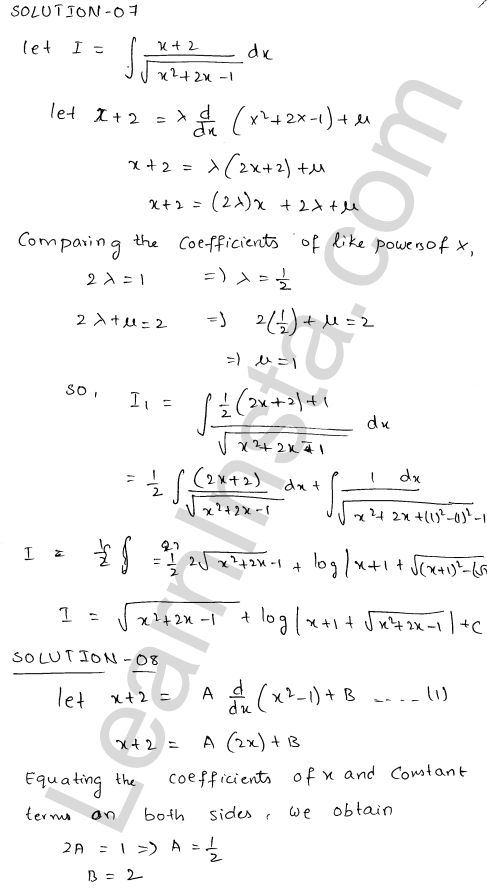 SOLUTION-07
let I = ∫ (x+2)/√(x²+2x-1) dx
let x+2 = λ d/dx (x²+2x-1) + μ
x+2 = λ(2x+2) + μ
x+2 = (2λ)x + 2λ+μ
Comparing the coefficients of like powers of x,
2λ=1 => λ = 1/2
2λ+μ=2 => 2(1/2) + μ = 2
=> μ=1
so, I₁ = ∫ (1/2(2x+2)+1)/√(x²+2x-1) dx
= 1/2 ∫ (2x+2)/√(x²+2x-1) dx + ∫ 1 dx/√(x²+2x+(1)²-(1)²-1
I = 1/2 2√(x²+2x-1) + log|x+1+√(x+1)²-(√
I = √(x²+2x-1) + log|x+1+√(x²+2x-1)|+c
SOLUTION-08
let x+2 = A d/dx (x²-1) + B ----- (1)
x+2 = A (2x) + B
Equating the coefficients of x and constant
terms on both sides, we obtain
2A = 1 => A = 1/2
B = 2
LearnInsta.com